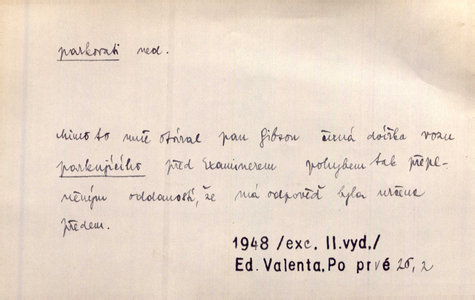 parkovati ned.
Mimo to mně otvíral pan Gibson černá dvířka vozu
parkujícího před Examinerem pohybem tak přepl-
něným oddaností, že má odpověď byla určena
předem.
1948 /exc. II.vyd,/
Ed. Valenta,Po prvé 25, 2